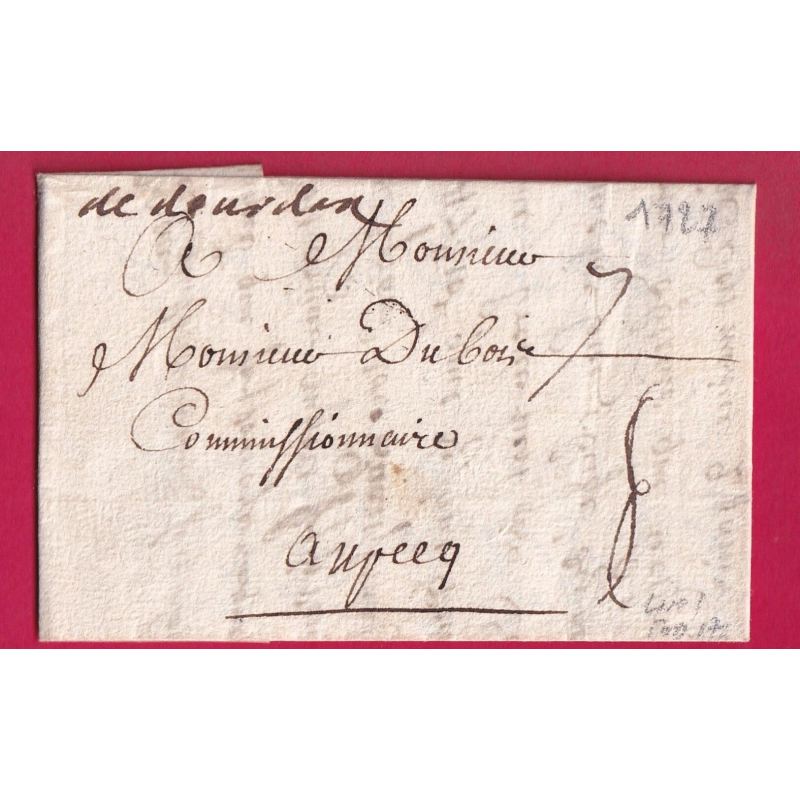 de dourdan
1727
A Monsieur
Monsieur Dubois
Commissionnaire
aupecq